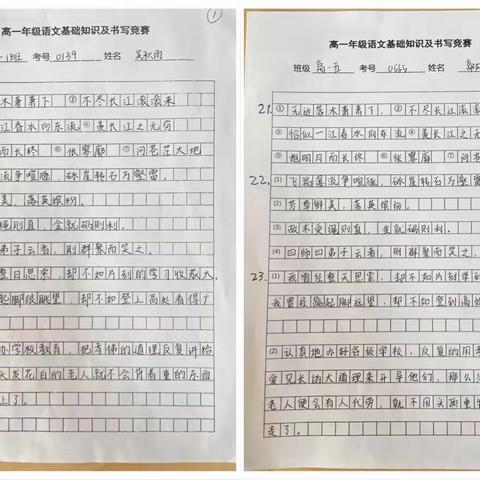 ①
高一年级语文基础知识及书写竞赛
1班 考号 0139 姓名 吴秋雨
木萧萧下 ②不尽长江滚滚来
江春水向东流 ④羡长江之无穷
而长终 ⑥怅寥廓 ⑦问苍茫大地
流争喧豗,砯崖转石万壑雷。
美,落英缤纷。
绳则直,金就砺则利。
弟子云者,则群聚而笑之。
整日思索,却不如片刻的学习收获大。
起脚跟眺望,却不如登上高处看得广
办学校教育,把孝悌的道理反复讲给
头发花白的老人就不会背着重的东西
上了。
高一年级语文基础知识及书写竞赛
班级 高一五 考号 姓名
21. ①无边落木萧萧下, ②不尽长江滚滚
③恰似一江春水向东流 ④羡长江之无
⑤抱明月而长终 ⑥怅寥廓 ⑦问
22. (1)飞湍瀑流争喧豗,砯崖转石万壑雷
(2)芳草鲜美,落英缤纷。
(3)故木受绳则直,金就砺则利。
(4)曰师曰弟子云者,则群聚而笑之。
23. (1)我曾经整天思索,却不如片刻
我曾经踮起脚远望,却不如登到高
(2)认真地办好各级学校,反复的用孝
爱兄长的大道理来开导他们,那么
老人便会有人代劳,就不用头顶重
走了。